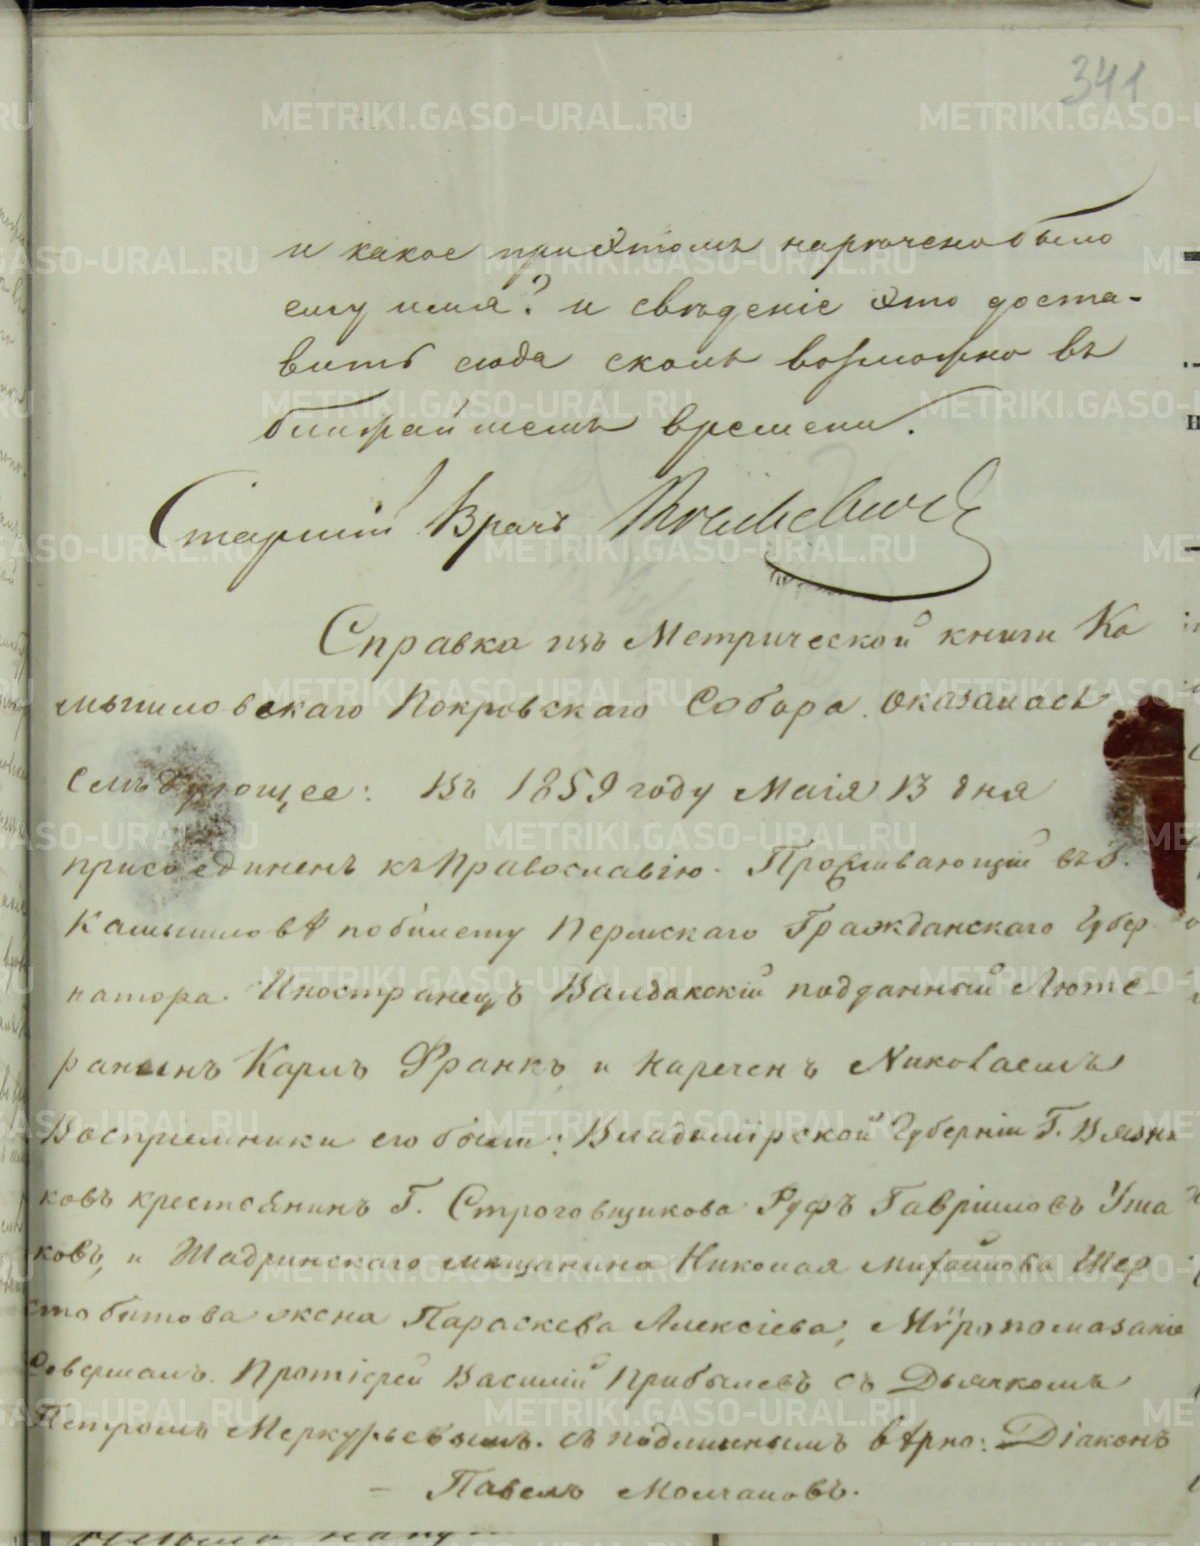 341
и какое приэтомъ нареченобыло
ему имя? и свѣденіе это доста-
вить сюда сколь возможно въ
ближайшемъ времени.
Старшій Врачъ
Справка изъ Метрической книги Ка
мышловскаго Покровскаго Собора. оказалась
Слѣдующее: Въ 1859 году Маія 13 дня
присоединенъ къ Православію. Проживающій въ Г.
Камышловѣ по билету Пермскаго Гражданскаго Губер
натора. Иностранецъ Валдакскій подданный Люте-
ранинъ Карлъ Франкъ, и нареченъ Николаемъ
Восприемники его были: Владимірской Губерніи Г. Вязни
ковъ крестьянинъ Г. Строговщикова Руфъ Гавріиловъ Уша
ковъ, и Шадринскаго мещанина Николая Михайлова Шер
стобитова жена Параскева Алексіева, Мѵропомазаніе
Совершалъ. Протіерей Василій Прибылевъ съ Дьячкомъ
Петромъ Меркурьевымъ. съ подлиннымъ вѣрно: Діаконъ
Павелъ Молчановъ.
METRIKI.GASO-URAL.RU